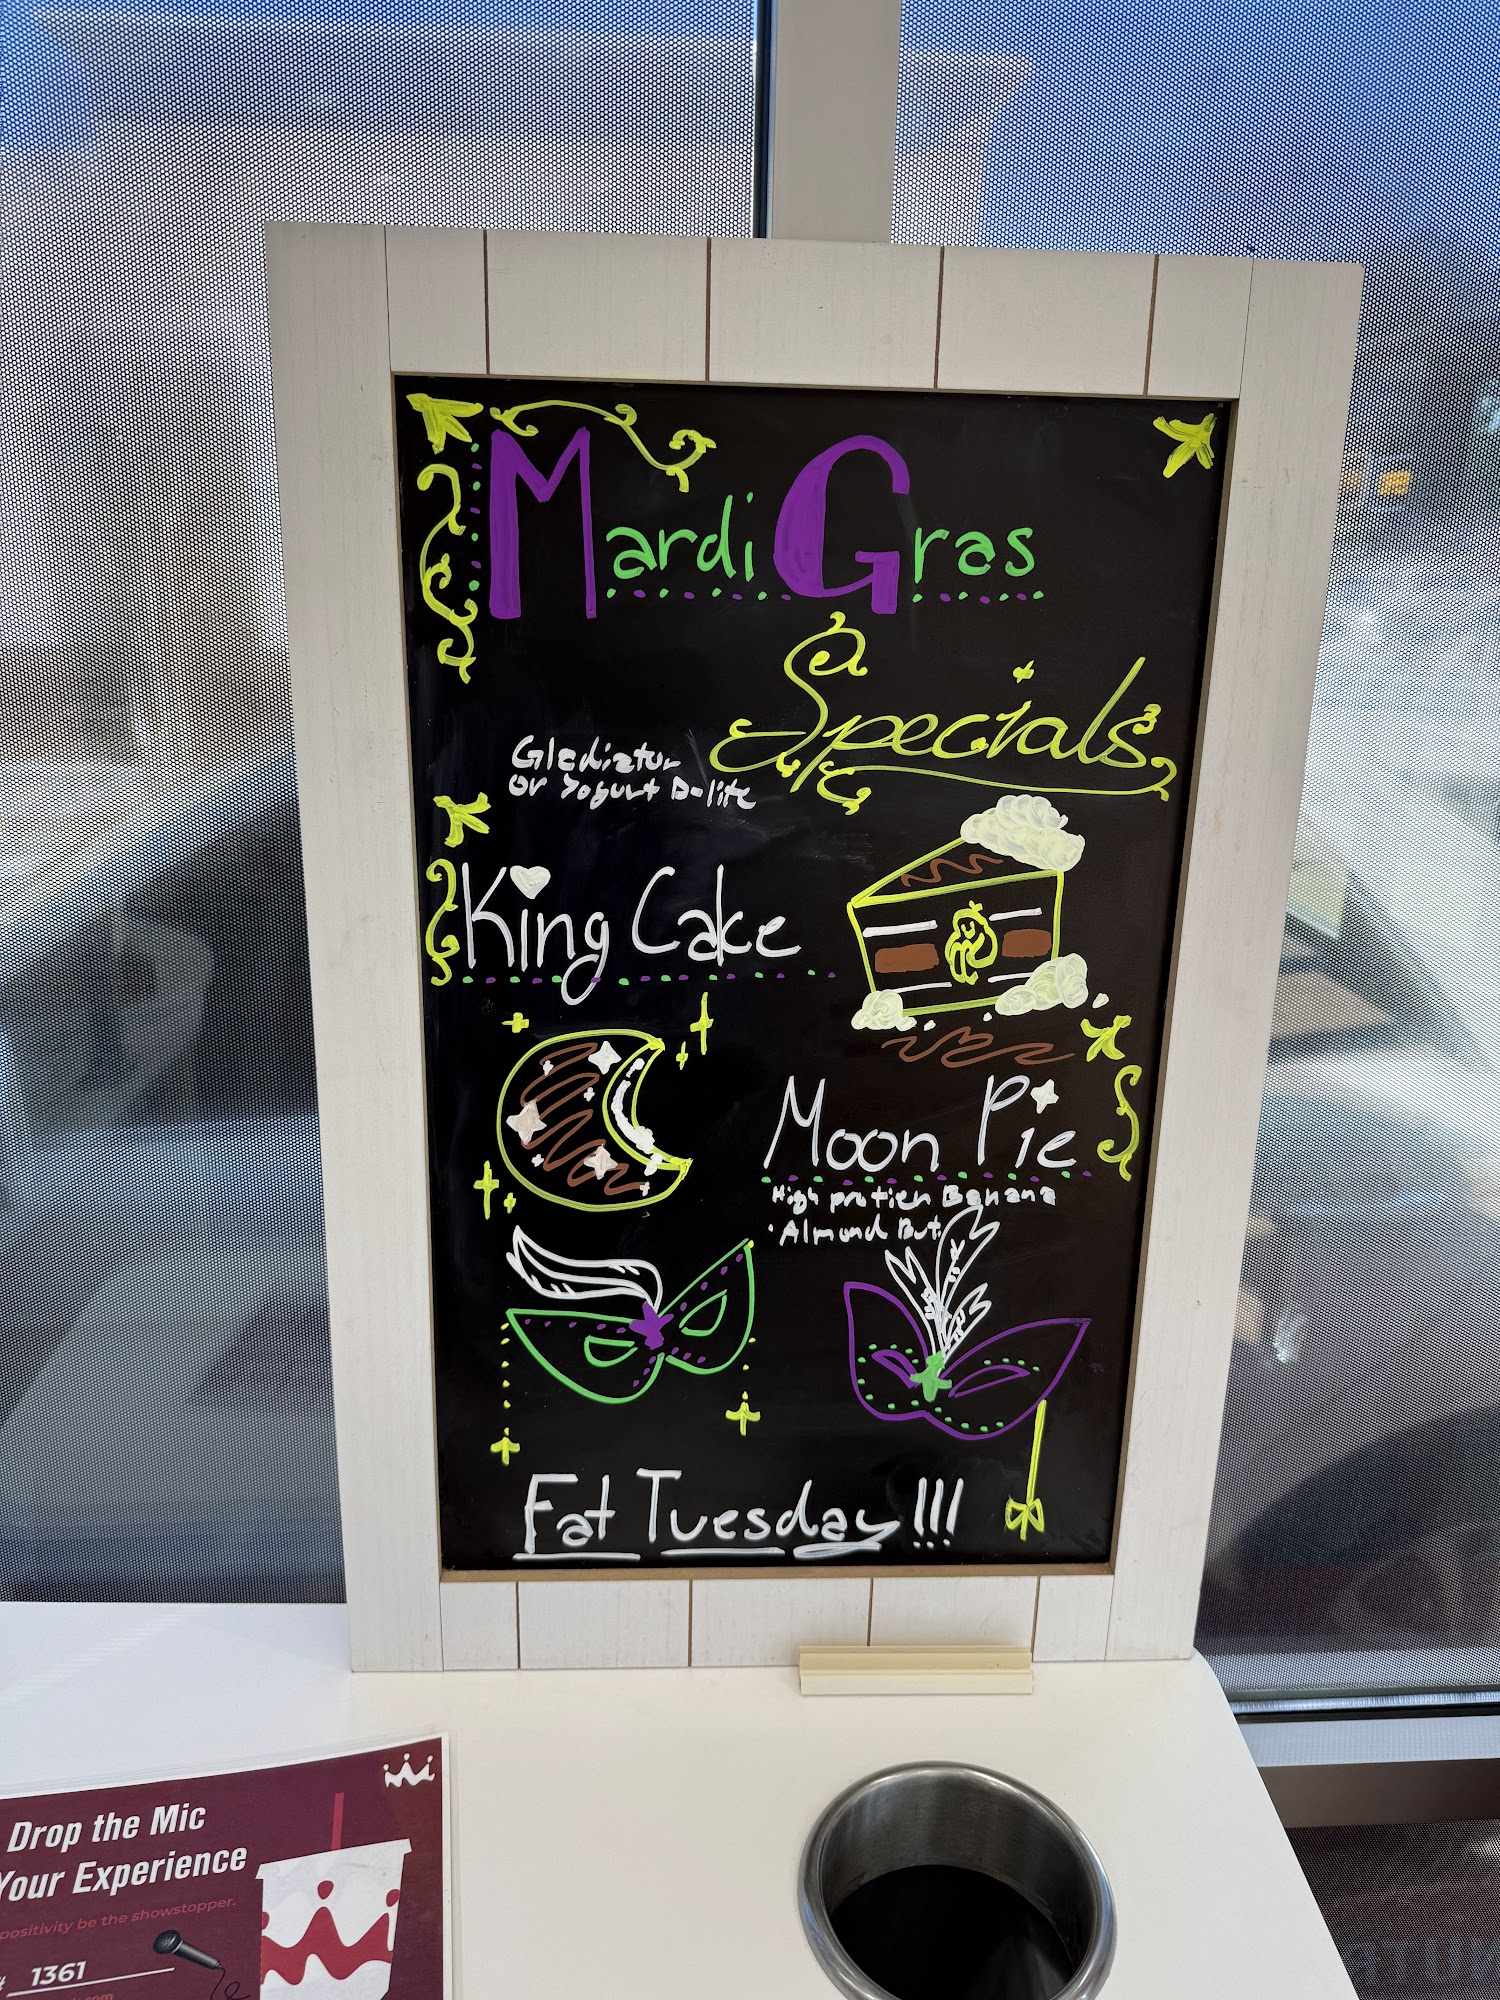 Mardi Gras
Specials
Glediatur
or Yogurt D-lite
King Cake
Moon Pie
High protien Banana
Almond But
Fat Tuesday!!!
Drop the Mic
Your Experience
positivity be the showstopper.
# 1361